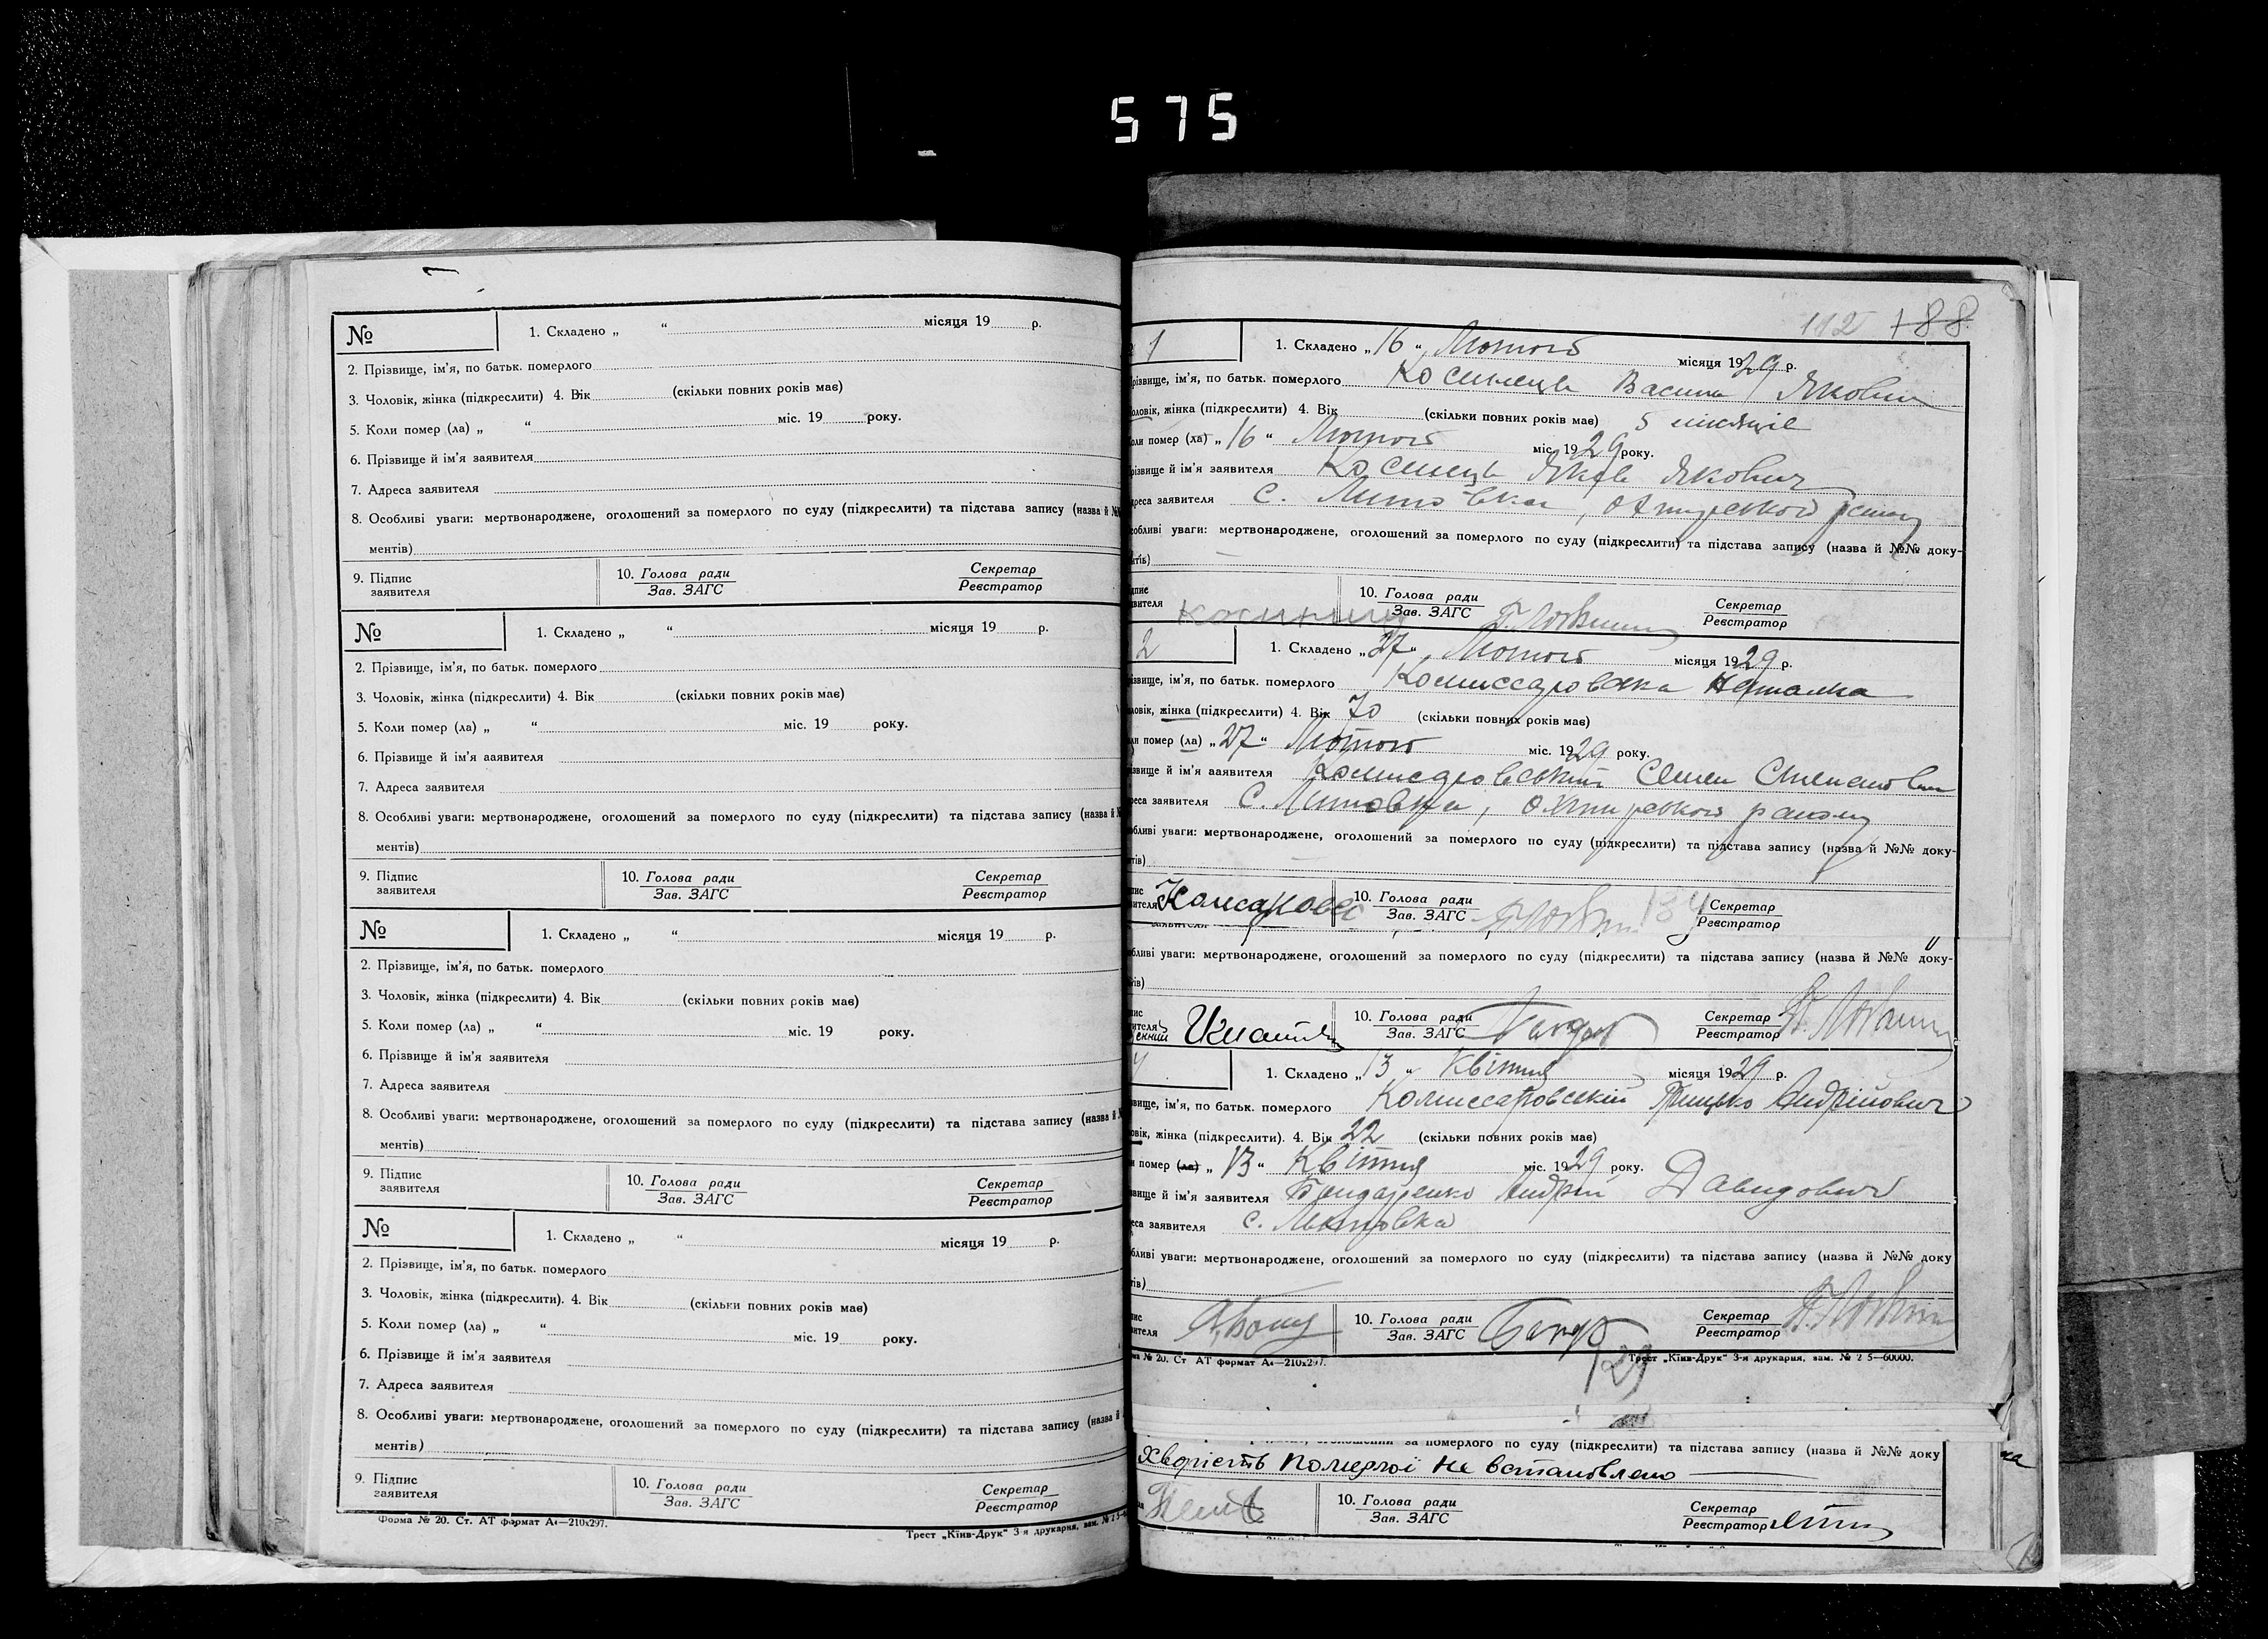 575
№ 1. Складено „ “ місяця 19 р.
2. Прізвище, ім'я, по батьк. померлого
3. Чоловік, жінка (підкреслити) 4. Вік (скільки повних років має)
5. Коли помер (ла) „ “ міс. 19 року.
6. Прізвище й ім'я заявителя
7. Адреса заявителя
8. Особливі уваги: мертвонароджене, оголошений за померлого по суду (підкреслити) та підстава запису (назва й
ментів)
9. Підпис заявителя 10. Голова ради Зав. ЗАГС Секретар Реєстратор
№ 1. Складено „ “ місяця 19 р.
2. Прізвище, ім'я, по батьк. померлого
3. Чоловік, жінка (підкреслити) 4. Вік (скільки повних років має)
5. Коли помер (ла) „ “ міс. 19 року.
6. Прізвище й ім'я ааявителя
7. Адреса заявителя
8. Особливі уваги: мертвонароджене, оголошений за померлого по суду (підкреслити) та підстава запису (назва й
ментів)
9. Підпис заявителя 10. Голова ради Зав. ЗАГС Секретар Реєстратор
№ 1. Складено „ “ місяця 19 р.
2. Прізвище, ім'я, по батьк. померлого
3. Чоловік, жінка (підкреслити) 4. Вік (скільки повних років має)
5. Коли помер (ла) „ “ міс. 19 року.
6. Прізвище й ім'я заявителя
7. Адреса заявителя
8. Особливі уваги: мертвонароджене, оголошений за померлого по суду (підкреслити) та підстава запису (назва й
ментів)
9. Підпис заявителя 10. Голова ради Зав. ЗАГС Секретар Реєстратор
№ 1. Складено „ “ місяця 19 р.
2. Прізвище, ім'я, по батьк. померлого
3. Чоловік, жінка (підкреслити). 4. Вік (скільки повних років має)
5. Коли помер (ла) „ “ міс. 19 року.
6. Прізвище й ім'я заявителя
7. Адреса заявителя
8. Особливі уваги: мертвонароджене, оголошений за померлого по суду (підкреслити) та підстава запису (назва й
ментів)
9. Підпис заявителя 10. Голова ради Зав. ЗАГС Секретар Реєстратор
Форма № 20. Ст. АТ формат А4—210x297. Трест „Київ-Друк" 3-я друкарня, зам. №
112 188
1 1. Складено „16“ Лютого місяця 1929 р.
різвище, ім'я, по батьк. померлого Косинець Василь Якович
оловік, жінка (підкреслити) 4. Вік (скільки повних років має) 5 місяців
оли помер (ла) „16“ Лютого міс. 1929 року.
різвище й ім'я заявителя Косинець Яків Якович
дреса заявителя с. Литовка, охтирського району
собливі уваги: мертвонароджене, оголошений за померлого по суду (підкреслити) та підстава запису (назва й №№ доку-
нтів)
дпис явителя 10. Голова ради Зав. ЗАГС Секретар Реєстратор
2 1. Складено „27“ Лютого місяця 1929 р.
звище, ім'я, по батьк. померлого Комиссаровська Наталка
ловік, жінка (підкреслити) 4. Вік 70 (скільки повних років має)
ли помер (ла) „27“ Лютого міс. 1929 року.
ізвище й ім'я ааявителя Комисаровський Семен Степанович
реса заявителя С. Литовка, охтирського району
обливі уваги: мертвонароджене, оголошений за померлого по суду (підкреслити) та підстава запису (назва й №№ доку-
нтів)
10. Голова ради Зав. ЗАГС Секретар Реєстратор
обливі уваги: мертвонароджене, оголошений за померлого по суду (підкреслити) та підстава запису (назва й №№ доку-
нтів)
10. Голова ради Зав. ЗАГС Секретар Реєстратор
4 1. Складено „13“ Квітня місяця 1929 р.
звище, ім'я, по батьк. померлого Комиссаровський Грицько Андрійович
овік, жінка (підкреслити). 4. Вік 22 (скільки повних років має)
и помер (ла) „13“ Квітня міс. 1929 року.
звище й ім'я заявителя Бондаренко Андрій Давидович
еса заявителя с. Литовка
бливі уваги: мертвонароджене, оголошений за померлого по суду (підкреслити) та підстава запису (назва й №№ доку
тів)
10. Голова ради Зав. ЗАГС Секретар Реєстратор
№ 20. Ст АТ формат А4—210x297. Трест „Київ-Друк" 3-я друкарня, зам. № 2 5—60000.
померлого по суду (підкреслити) та підстава запису (назва й №№ доку
Хворість померлої не встановлено
10. Голова ради Зав. ЗАГС Секретар Реєстратор